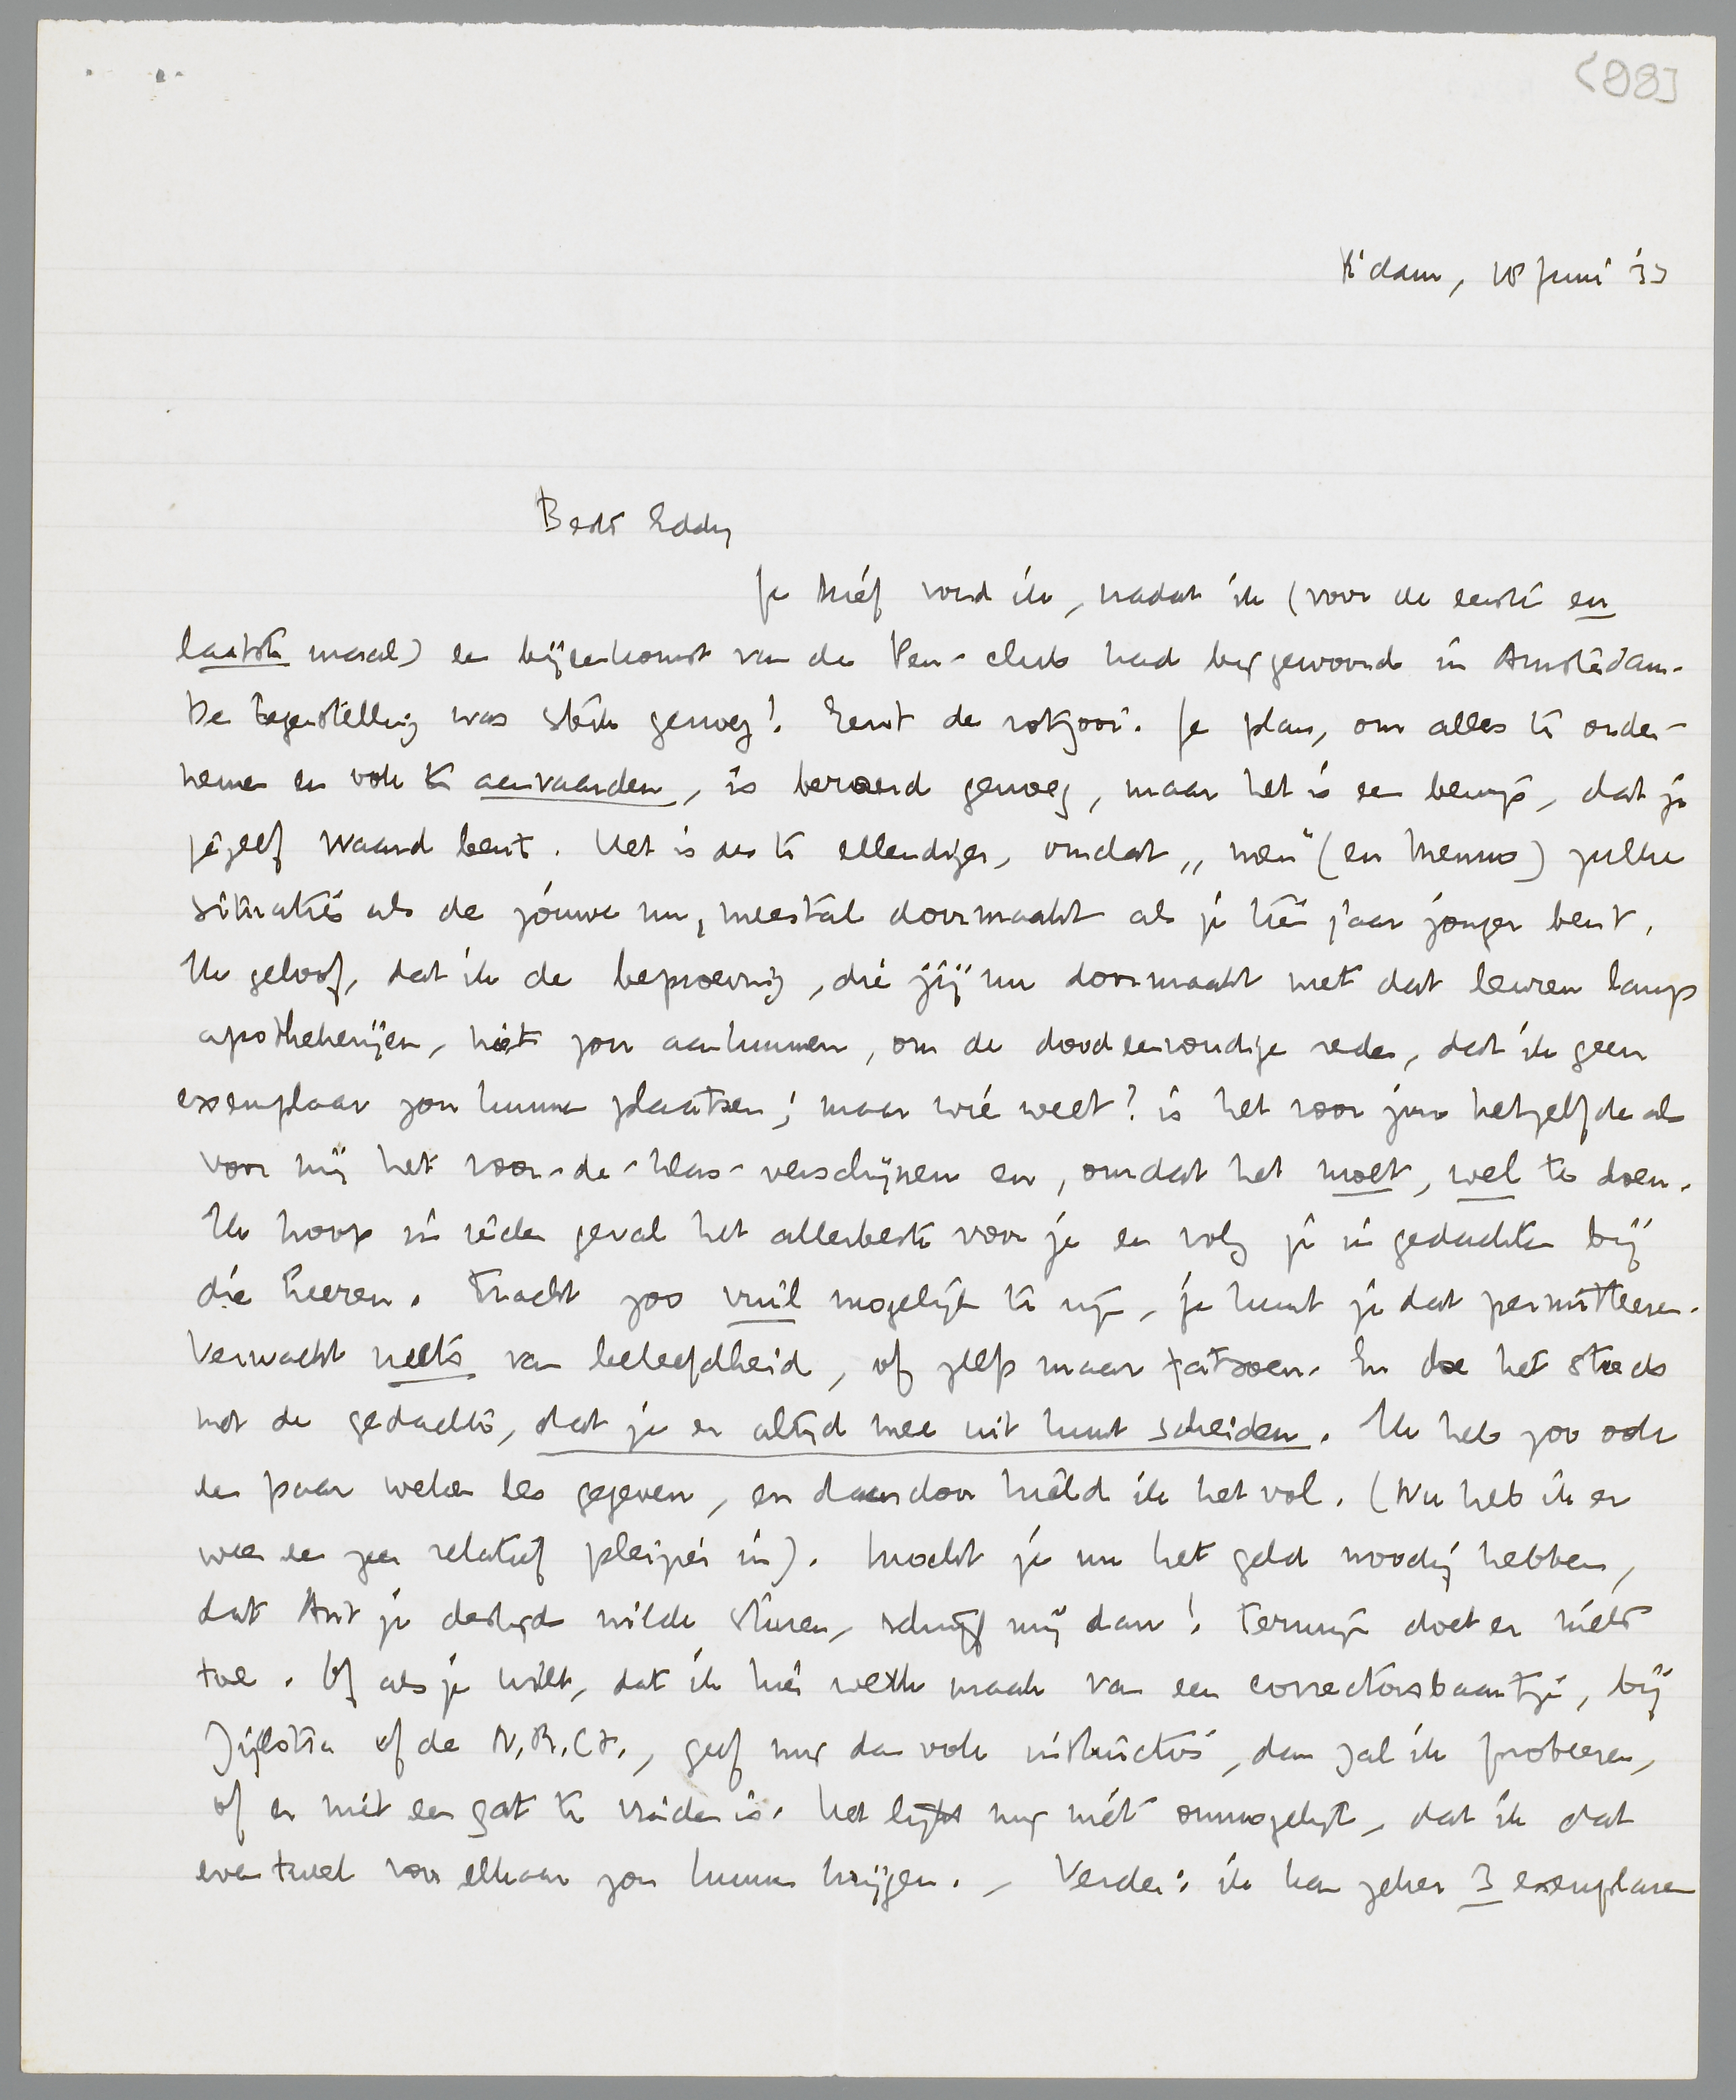 (98]
R'dam, 18 Juni '33
Beste Eddy
Je brief vond ik, nadat ik (voor de eerste en
laatste maal) een bijeenkomst van de Pen-club had bijgewoond in Amsterdam.
De tegenstelling was sterk genoeg! Eerst de rotzooi. Je plan, om alles te onder-
nemen en ook te aanvaarden, is beroerd genoeg, maar het is een bewijs, dat je
jezelf waard bent. Het is des te ellendiger, omdat „men" (en Menno) zulke
situaties als de jouwe nu, meestal doormaakt als je tien jaar jonger bent.
Ik geloof, dat ik de beproeving, die jij nu doormaakt met dat leuren langs
apothekerijen, niet zou aankunnen, om de doodeenvoudige reden, dat ik geen
exemplaar zou kunnen plaatsen; maar wie weet? is het voor jou hetzelfde als
voor mij het voor-de-klas-verschijnen en, omdat het moet, wel te doen.
Ik hoop in ieder geval het allerbeste voor je en volg je in gedachten bij
die heeren. Tracht zoo vuil mogelijk te zijn, je kunt je dat permitteeren.
Verwacht niets van beleefdheid, of zelfs maar fatsoen. En doe het steeds
met de gedachte, dat je er altijd mee uit kunt scheiden. Ik heb zoo ook
een paar weken les gegeven, en daardoor hield ik het vol. (Nu heb ik er
weer een zeer relatief pleizier in). Mocht je nu het geld noodig hebben,
dat Ant je destijds wilde sturen, schrijf mij dan! Termijn doet er niets
toe. Of als je wilt, dat ik hier werk maak van een correctorsbaantje, bij
Zijlstra of de N.R.Ct., geef mij dan ook instructies, dan zal ik probeeren,
of er niet een gat te vinden is. Het lijkt mij niet onmogelijk, dat ik dat
eventueel voor elkaar zou kunnen krijgen. – Verder: ik kan zeker 3 exemplaren